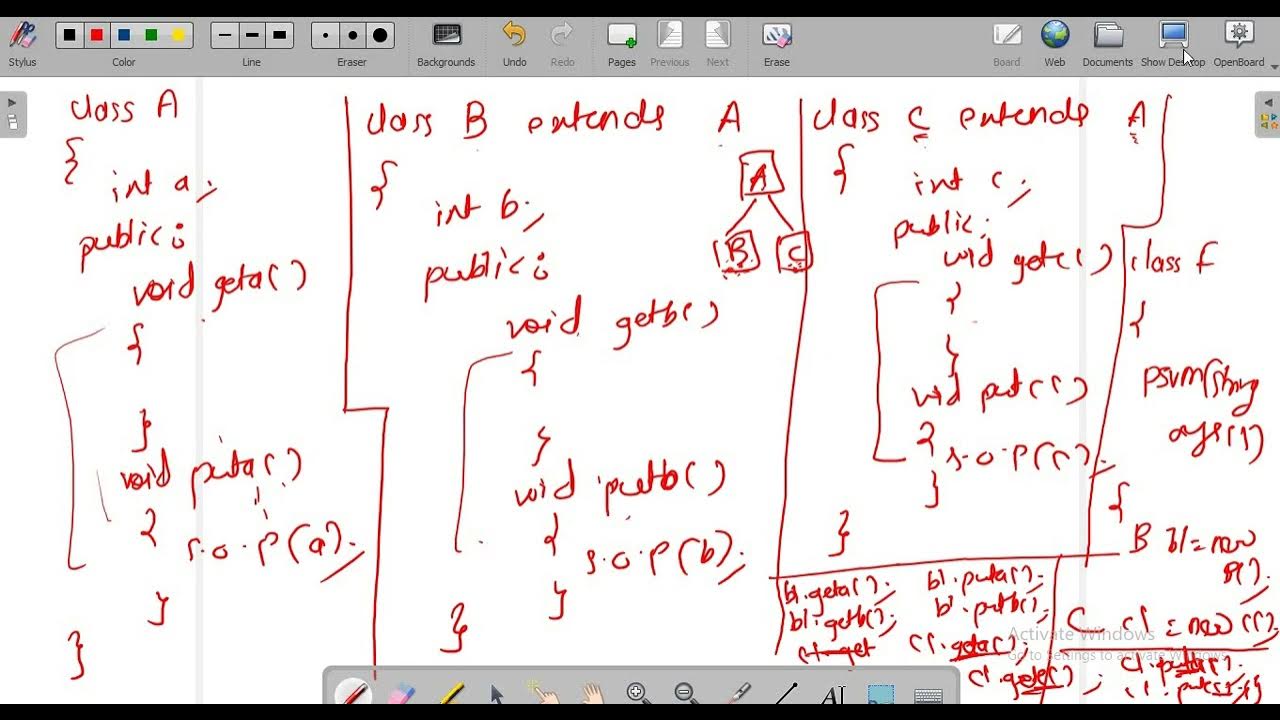 Stylus
Color
Line
Eraser
Backgrounds
Undo
Redo
Pages
Previous
Next
Erase
Board
Web
Documents
Show Desktop
OpenBoard
class A
{
int a;
public:
void geta()
{
}
void puta()
{
s.o.p(a);
}
}
class B extends A
{
int b;
public:
void getb()
{
}
void putb()
{
s.o.p(b);
}
}
A
B C
class C extends A
{
int c;
public:
void getc()
{
}
void putc()
{
s.o.p(c);
}
}
class F
{
psvm(string
args[])
{
B b1=new
B();
C c1=new C();
b1.geta();
b1.getb();
c1.get
b1.puta();
b1.putb();
c1.geta();
c1.getc();
c1.puta();
c1.putc();
Activate Windows
Go to Settings to activate Windows.